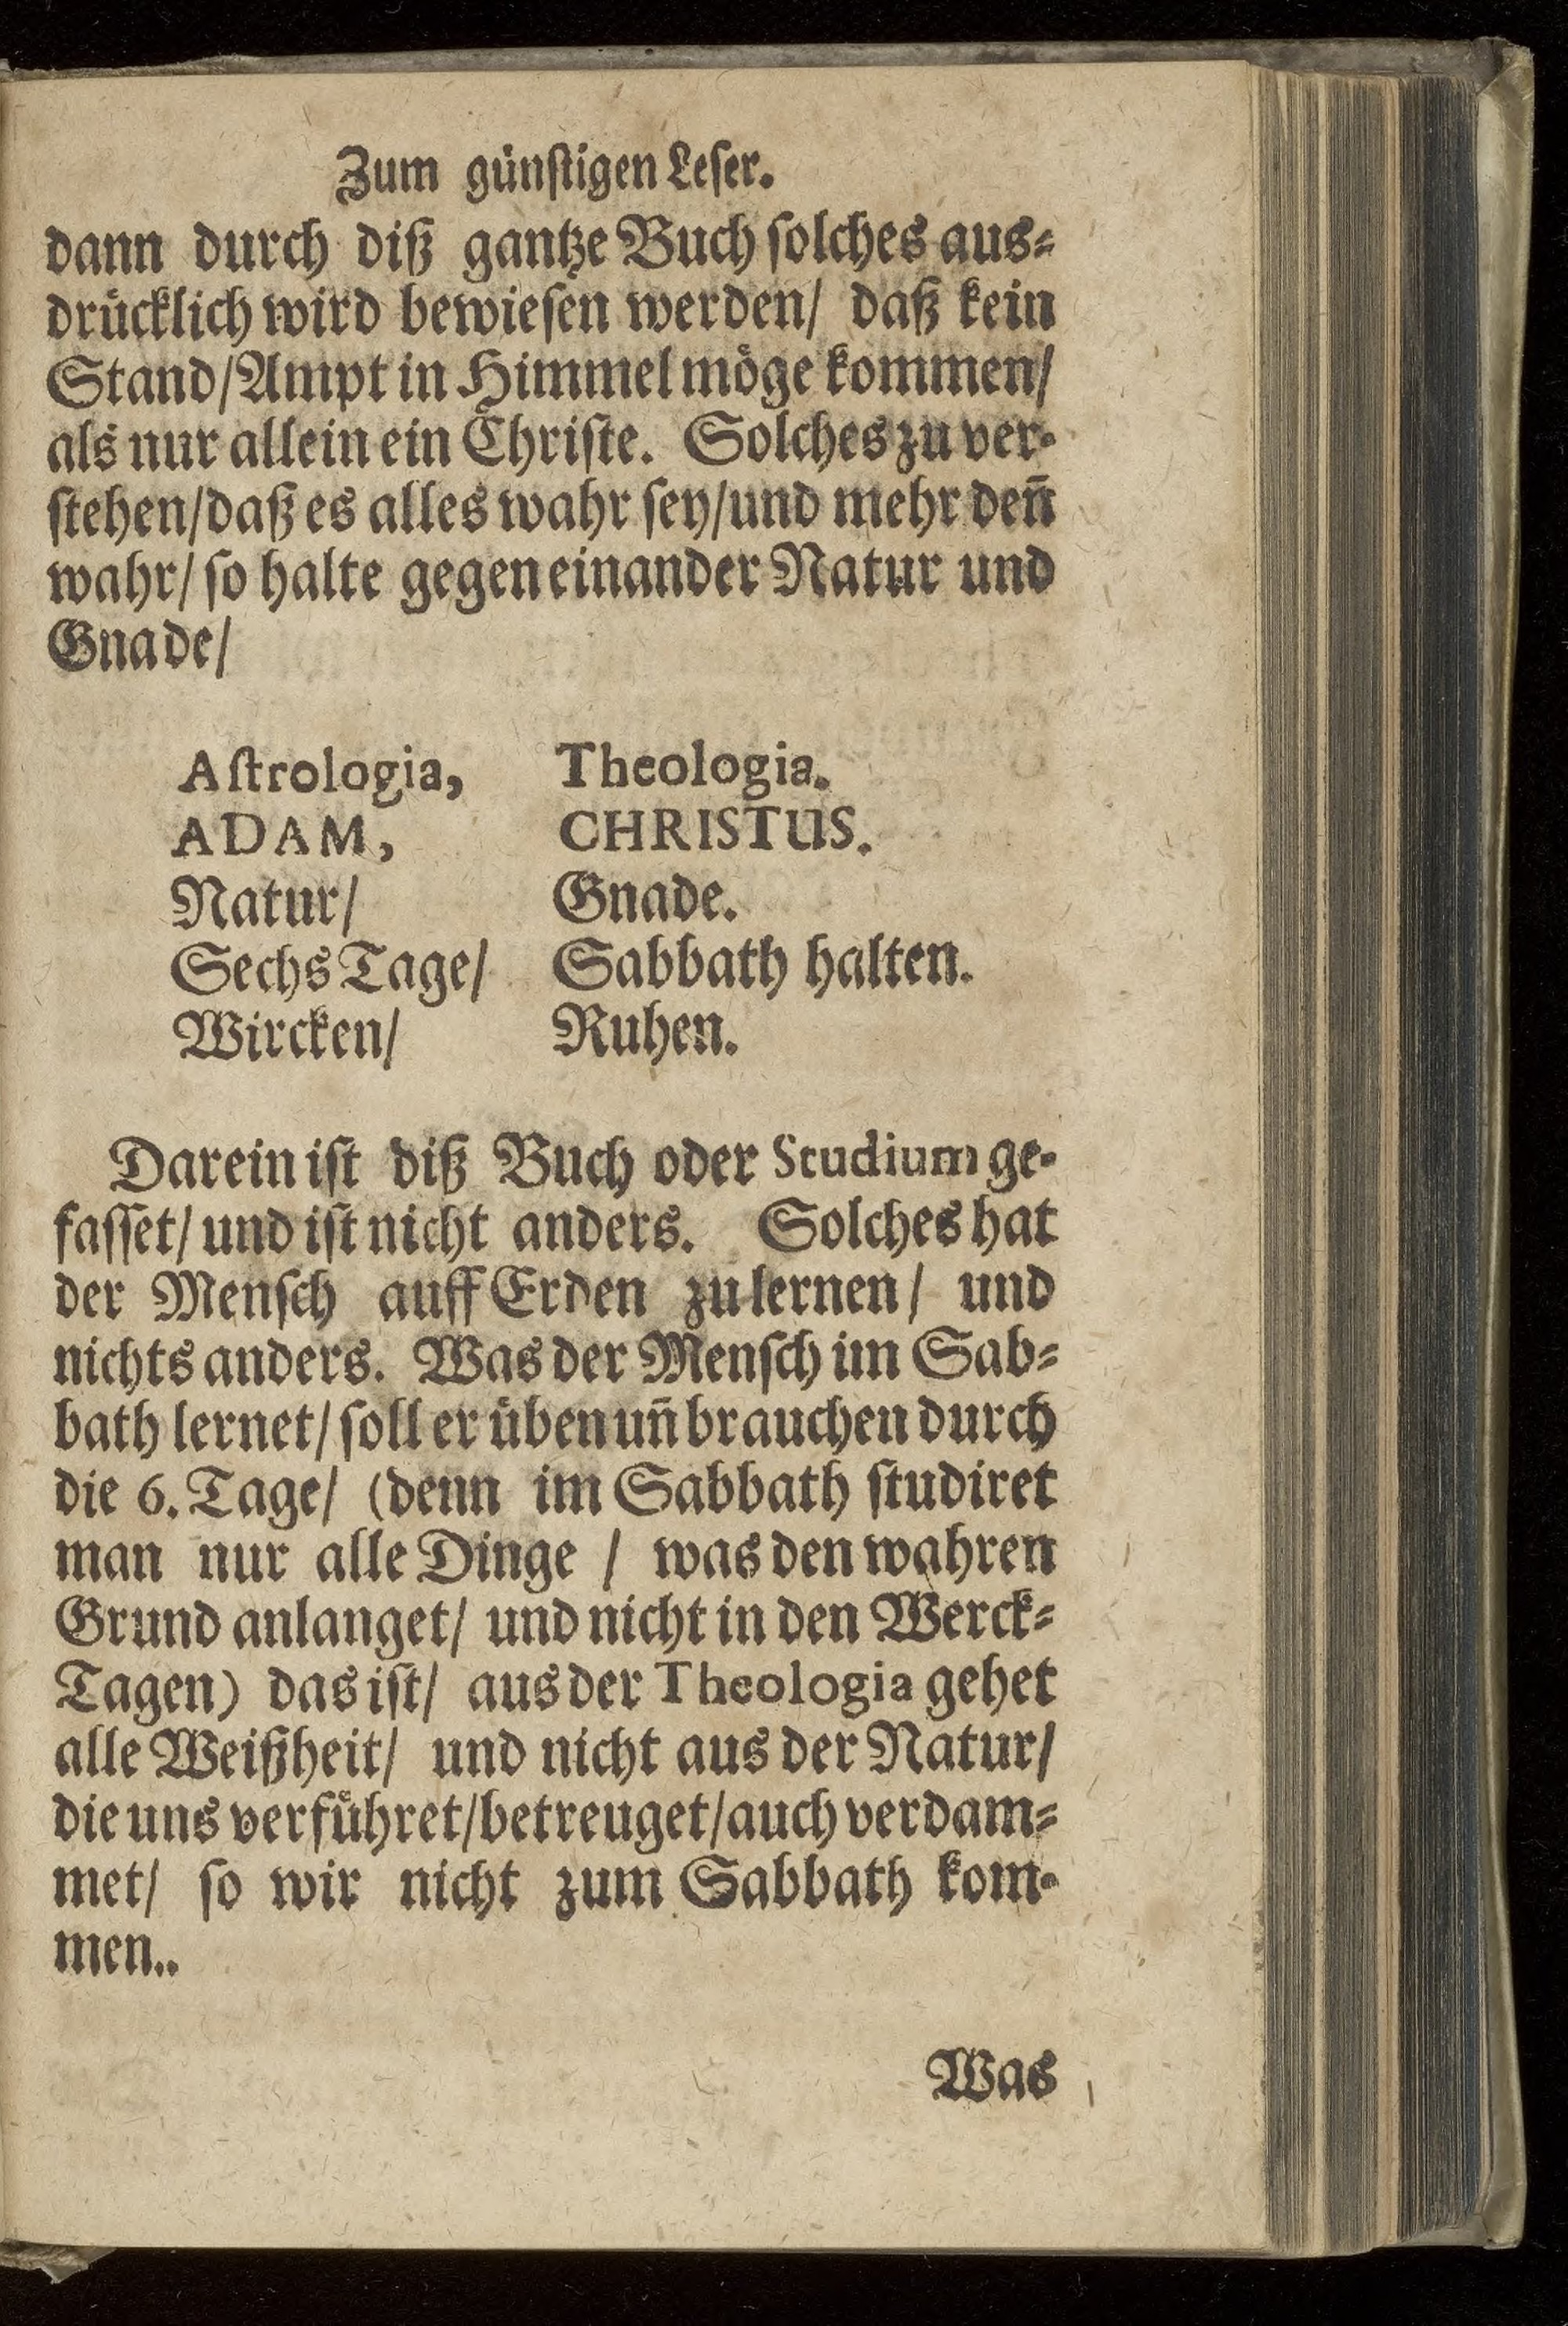 Zum günſtigen Leſer.
dann durch diß gantze Buch ſolches aus⸗
drücklich wird bewieſen werden/ daß kein
Stand/Ampt in Himmel möge kommen/
als nur allein ein Chriſte. Solches zu ver⸗
ſtehen/daß es alles wahr ſey/und mehr den̄
wahr/ ſo halte gegen einander Natur und
Gnade/
Aſtrologia, Theologia.
ADAM, CHRISTUS.
Natur/ Gnade.
Sechs Tage/ Sabbath halten.
Wircken/ Ruhen.
Darein iſt diß Buch oder Studium ge⸗
faſſet/ und iſt nicht anders. Solches hat
der Menſch auff Erden zu lernen/ und
nichts anders. Was der Menſch im Sab⸗
bath lernet/ ſoll er üben un̄ brauchen durch
die 6. Tage/ (denn im Sabbath ſtudiret
man nur alle Dinge / was den wahren
Grund anlanget/ und nicht in den Werck⸗
Tagen) das iſt/ aus der Theologia gehet
alle Weißheit/ und nicht aus der Natur/
die uns verführet/betreuget/auch verdam⸗
met/ ſo wir nicht zum Sabbath kom⸗
men..
Was